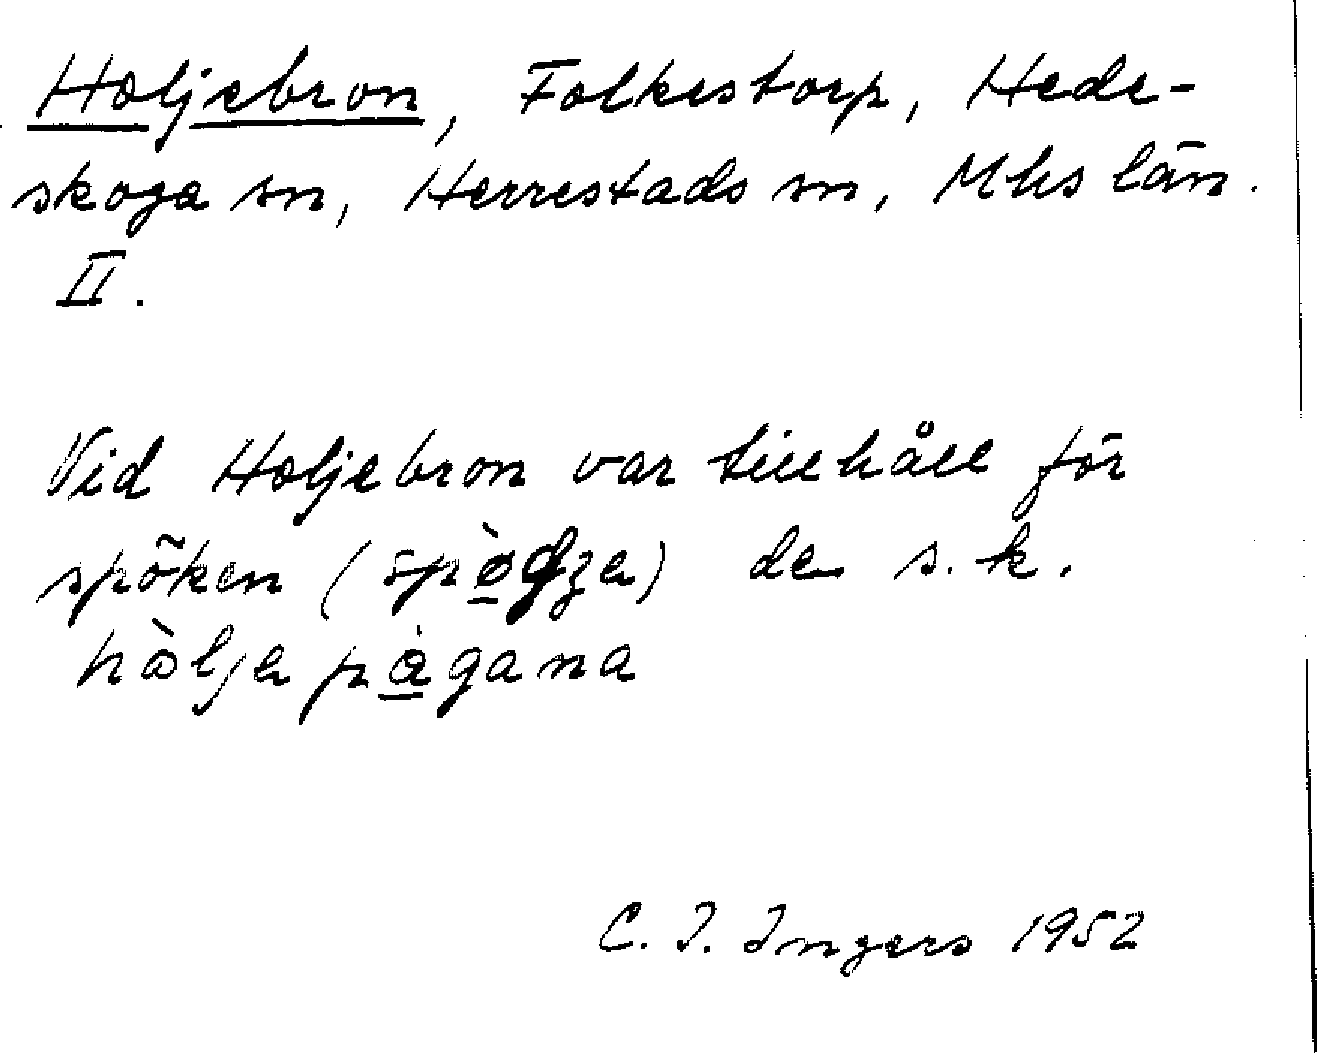 Holjebron, Folkestorp, Hede-
skoga sn, Herrestads sn, Mhs län.
II.
Vid Holjebron var tillhåll för
spöken (spø̀dʒa) de s.k.
hòlja pàgana
C. I. Ingers 1952